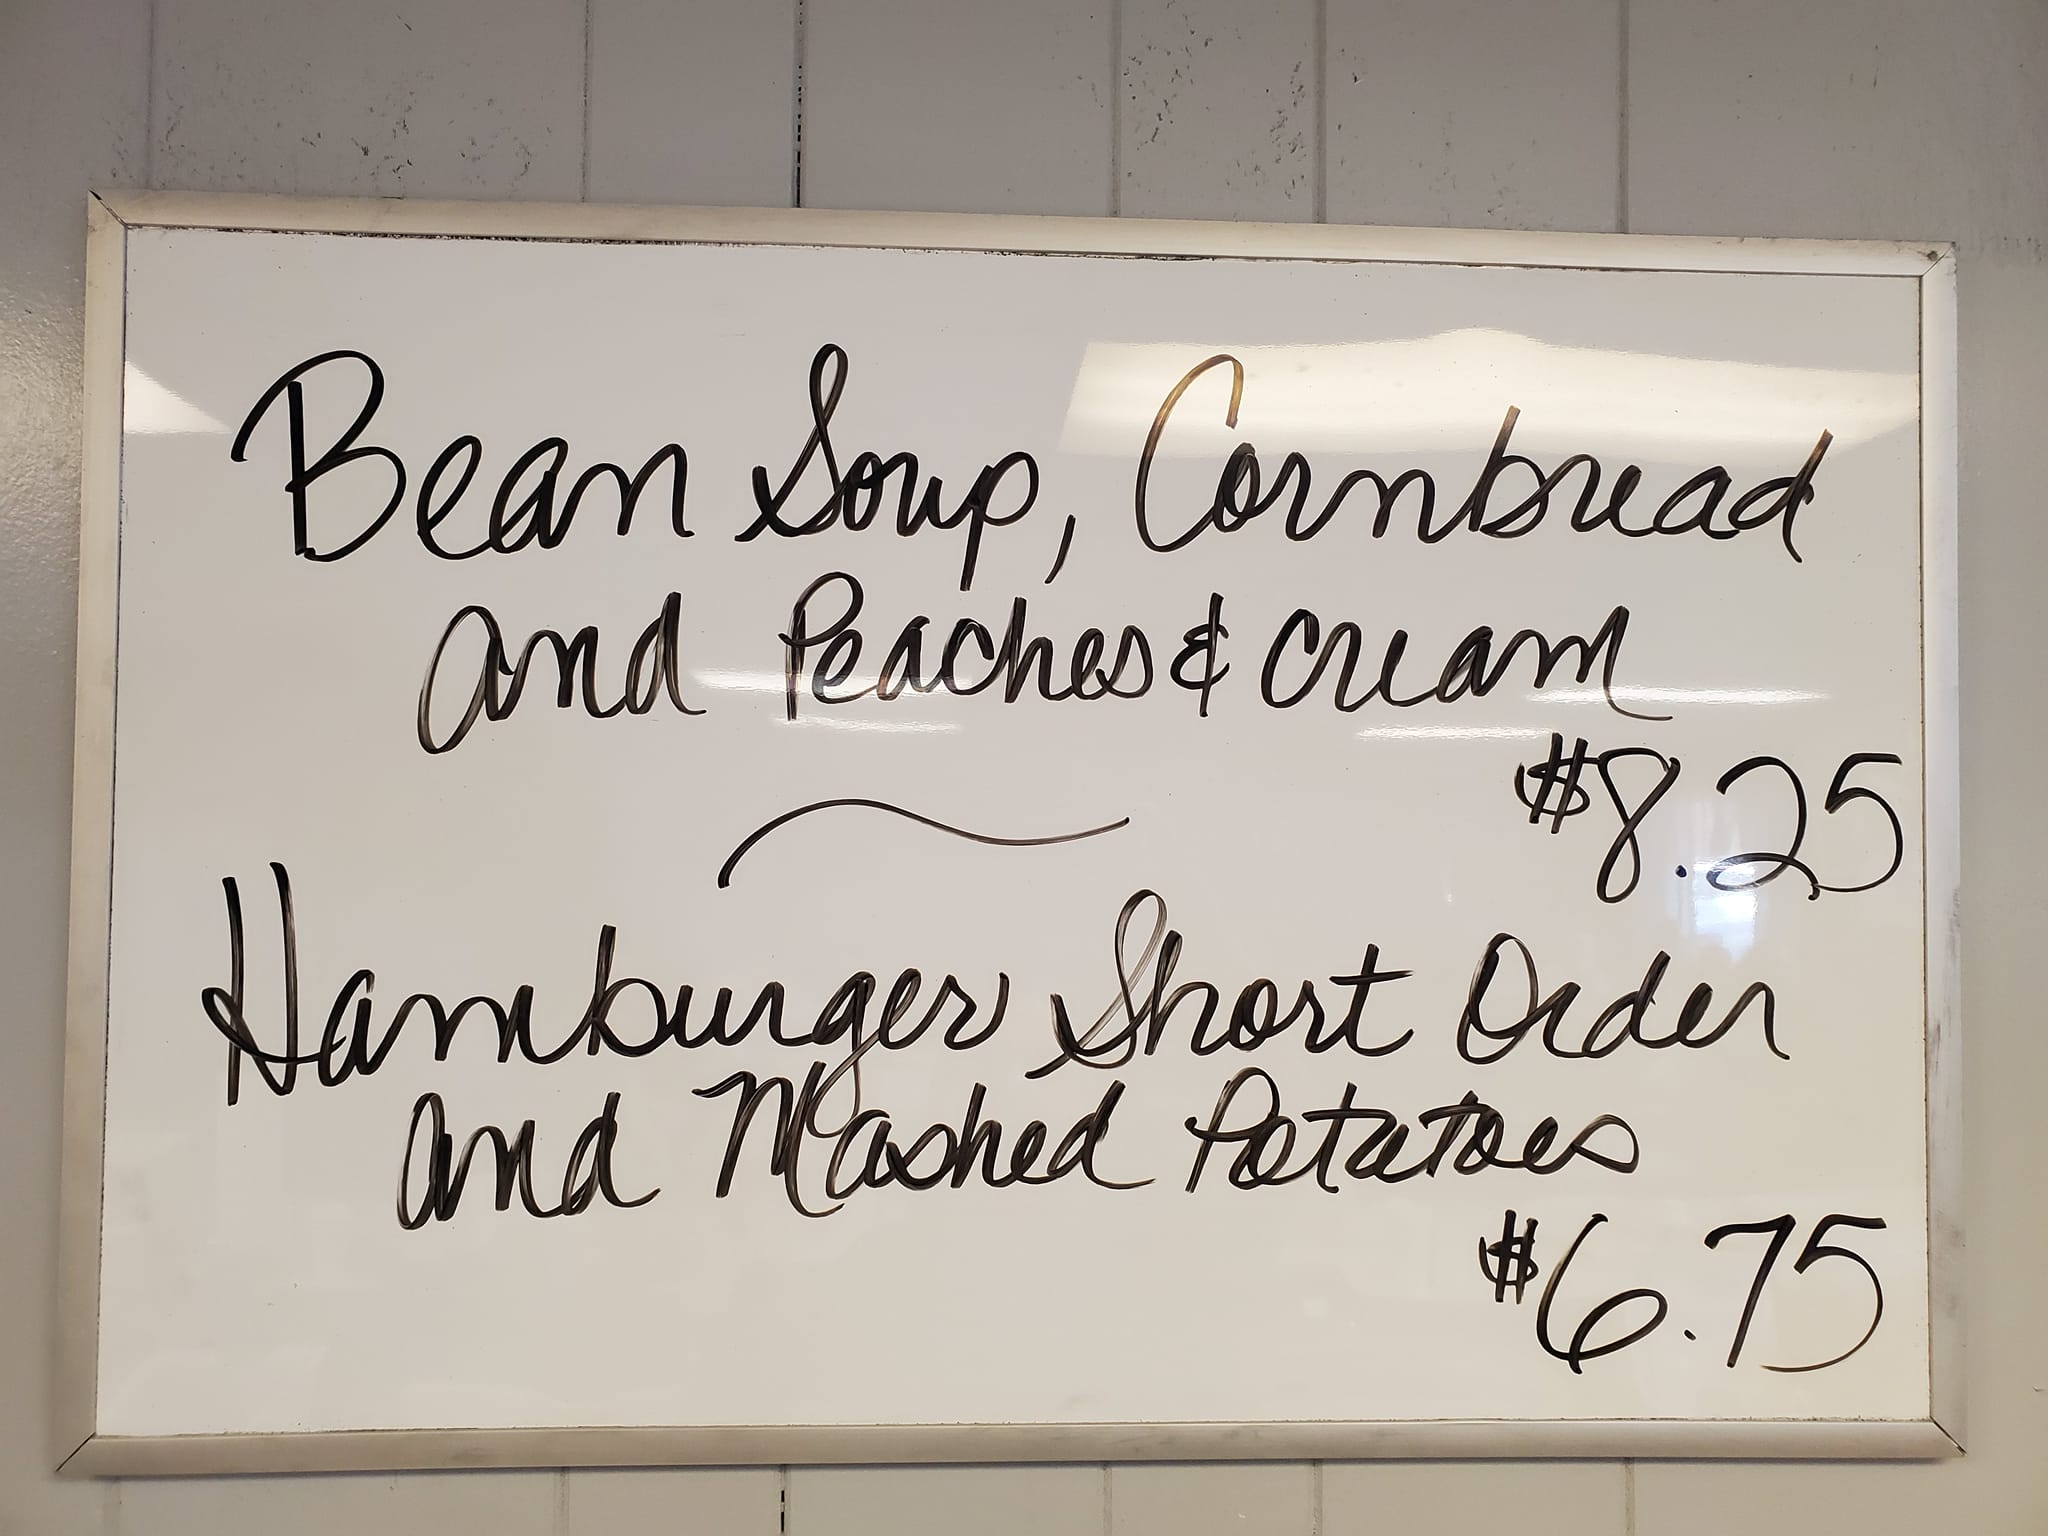 Bean Soup, Cornbread
and Peaches & Cream
$8.25
Hamburger Short Order
and Mashed Potatoes
$6.75